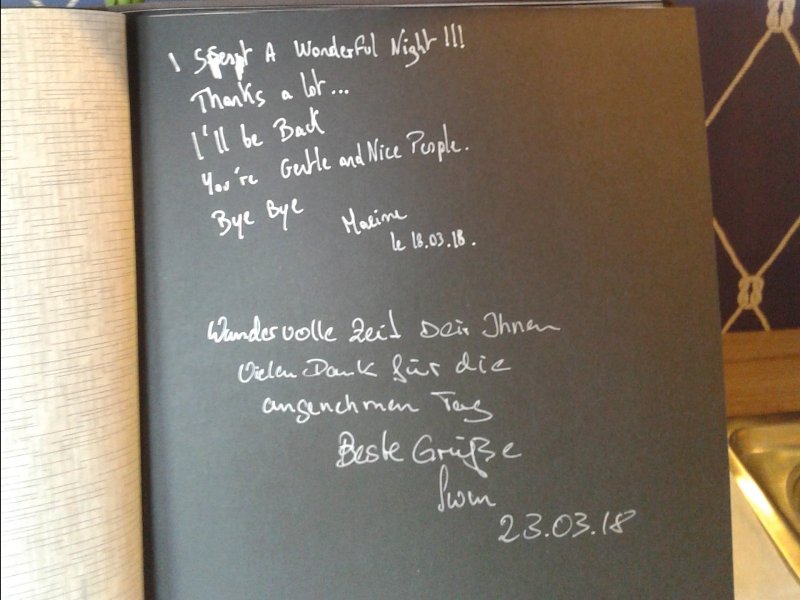 I Spent A Wonderful Night!!!
Thanks a lot...
I'll be Back
You're Gentle and Nice People.
Bye Bye
Maxime
le 18.03.18.
Wundervolle Zeit bei Ihnen
Vielen Dank für die
angenehmen Tag
Beste Grüße
23.03.18